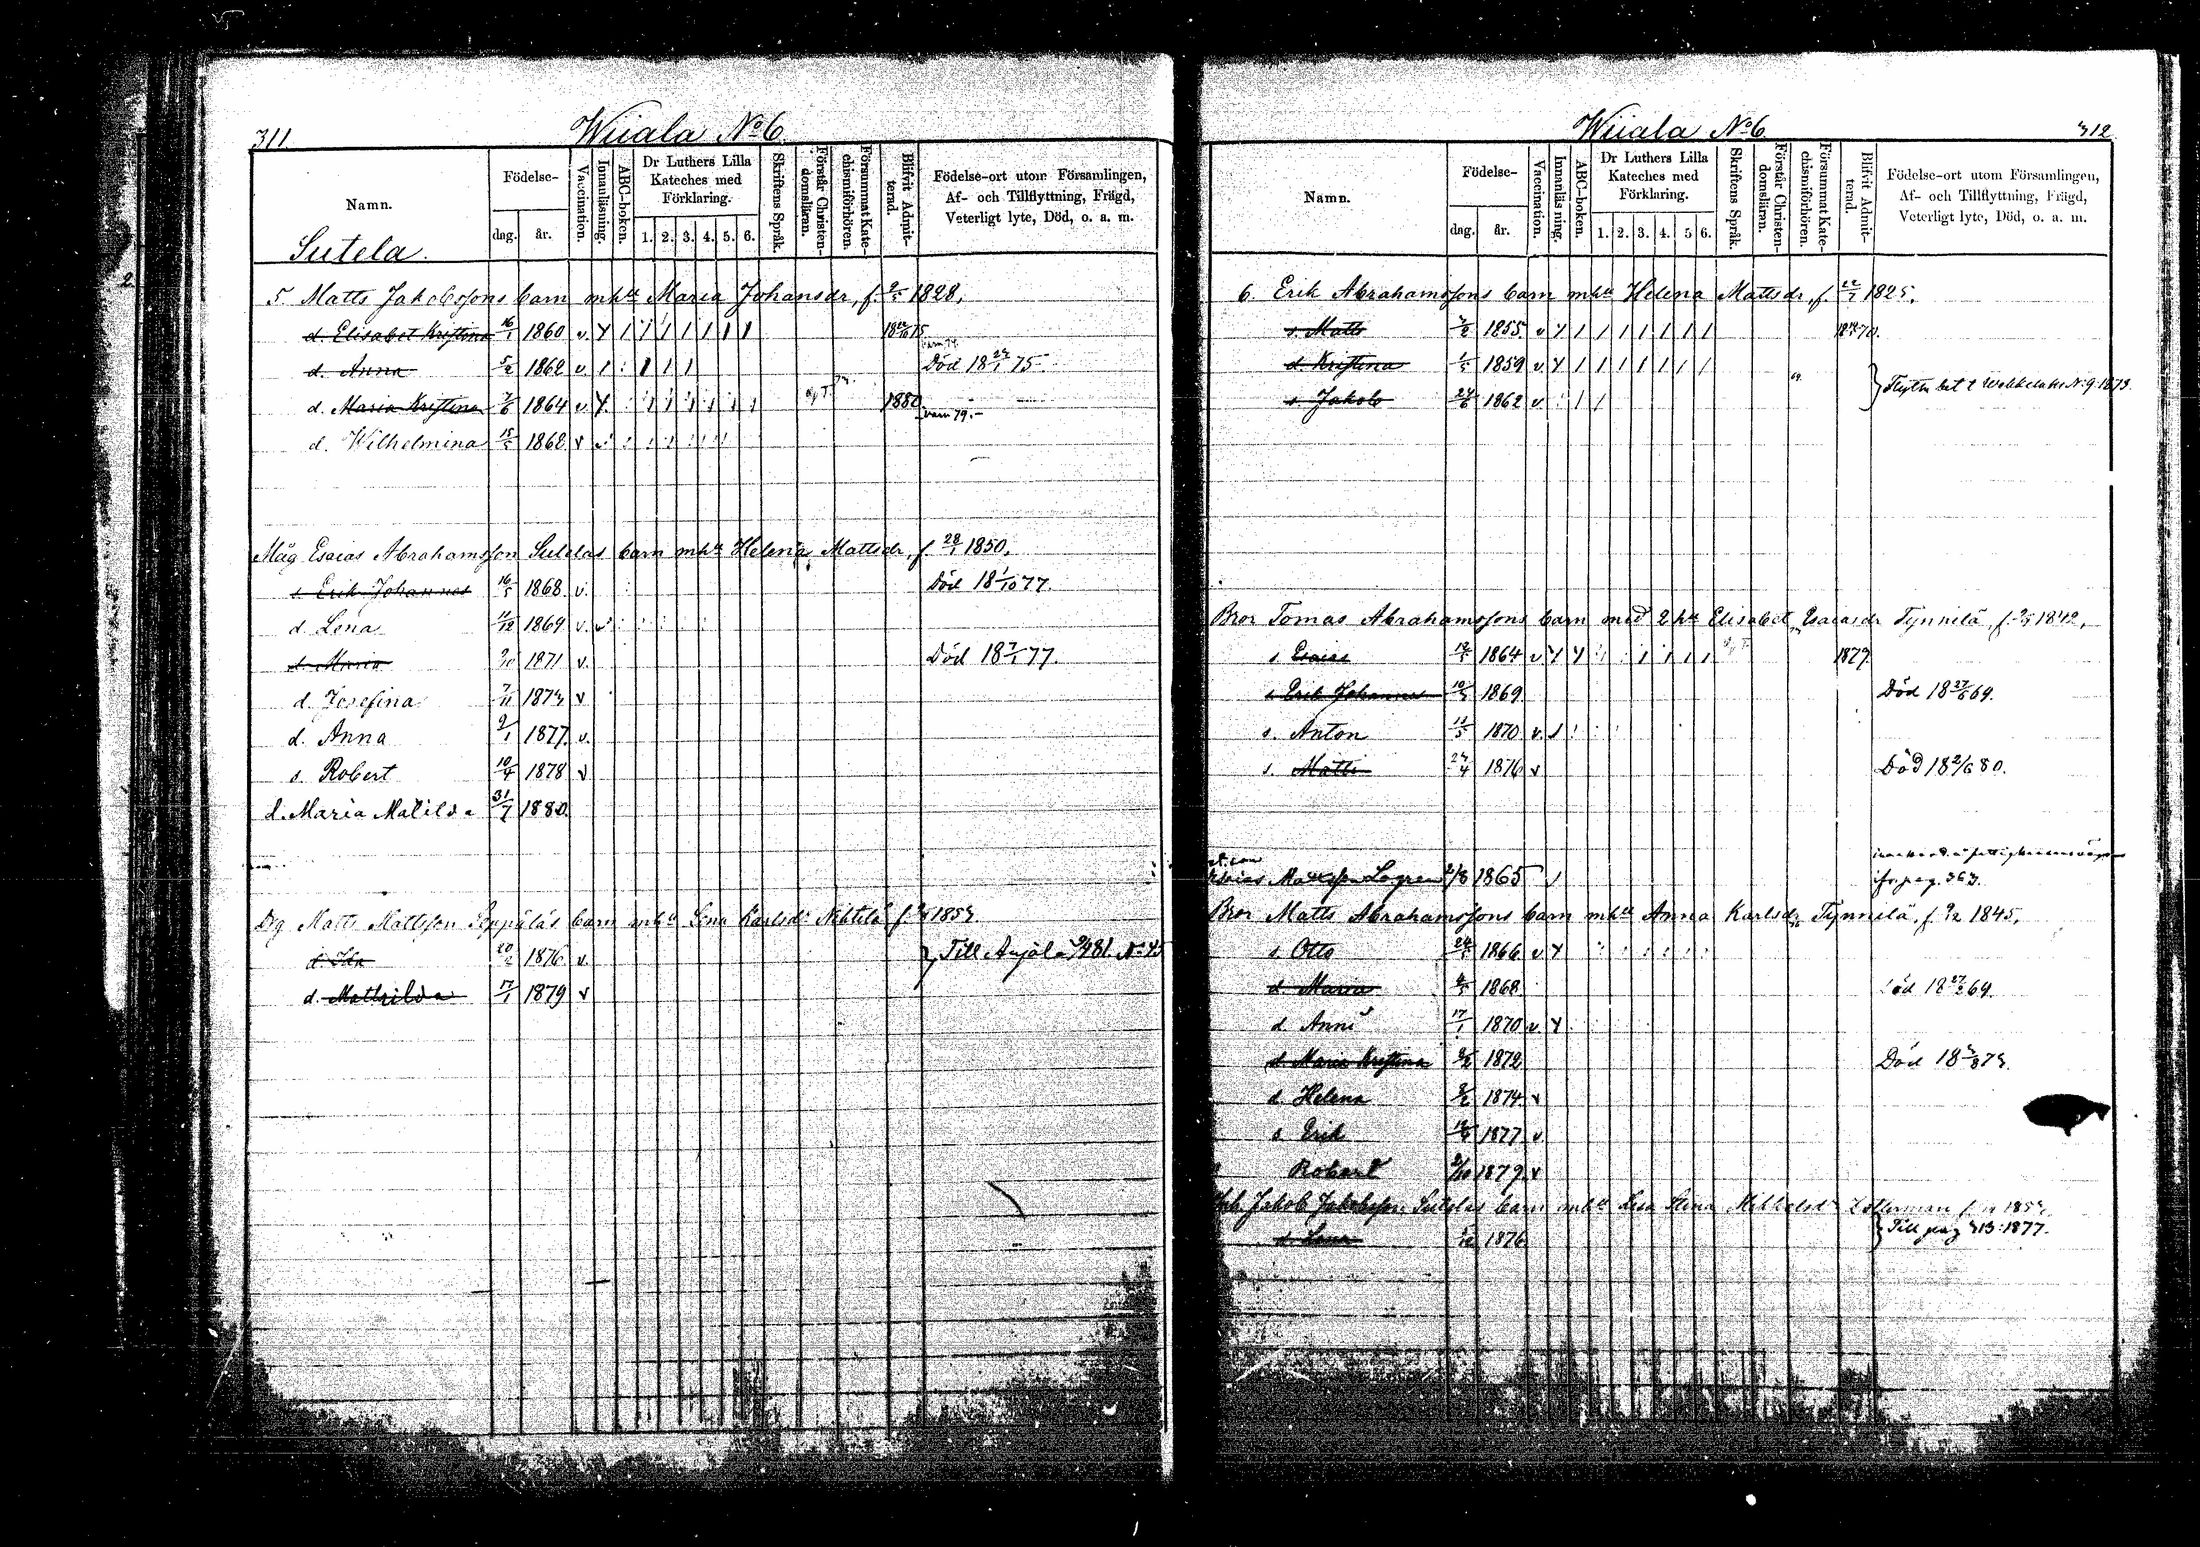 311 Wiiala No 6
Namn. Födelse- dag. år. Vaccination. Innanläsning. ABC-boken. Dr Luthers Lilla Kateches med Förklaring. 1. 2. 3. 4. 5. 6. Skriftens Språk. Förstår Christendomsläran. Försummat Katechismiförhören. Blifvit Admitterad. Födelse-ort utom Församlingen, Af- och Tillflyttning, Frägd, Veterligt lyte, Död, o. a. m.
Sutela.
2
5. Matts Jakobssons barn m hu Maria Johansdr, f. 1828,
d. Elisabet Kristina 16/1 1860 v.
d. Anna 5/2 1862 v. Död 18 24/1 75
d. Maria Kristina 7/6 1864 v. 1880
d. Wilhelmina 15/5 1868 v
Måg Esaias Abrahamsson Sutelas barn m hu Helena Mattsdr, f. 28/1 1850.
s. Erik Johannes 16/5 1868 v. Död 18 1/10 77.
d. Lena 11/12 1869 v.
d. Maria 9/10 1871 v. Död 18 7/1 77.
d. Josefina 7/11 1873 v
d. Anna 9/1 1877. v.
s. Robert 10/4 1878 v
d. Maria Matilda 31/7 1880.
Drg Matts Mattsson Seppäläs barn m hu Lena Karlsdr f. 1853
d. Ida 20/2 1876 v. } Till Anjala 81. No 45
d. Mathilda 17/1 1879 v
Wiiala No 6 312
Namn. Födelse- dag. år. Vaccination. Innanläsning. ABC-boken. Dr Luthers Lilla Kateches med Förklaring. 1. 2. 3. 4. 5 6. Skriftens Språk. Förstår Christendomsläran. Försummat Katechismiförhören. Blifvit Admitterad. Födelse-ort utom Församlingen, Af- och Tillflyttning, Frägd, Veterligt lyte, Död, o. a. m.
6. Erik Abrahamssons barn m hu Helena Mattsdr, f. 22/7 1825.
s. Matts 1855 v
d. Kristina 1/5 1859 v.
s. Jakob 24/6 1862 v. No 9 1873.
Bror Tomas Abrahamssons barn med 2 hu Elisabet Esaiasdr Tynnilä, f. 1842,
s. Esaias 1864 v 1879.
s. Erik Johannes 1869 Död 18 27/6 69.
s. Anton 11/5 1870 v.
s. Matts 24/4 1876 v Död 18 2/6 80.
Esaias Mattsson Lagren 2/8 1865 pag. 363.
Bror Matts Abrahamssons barn m hu Anna Karlsdr Tynnilä, f. 9/2 1845,
s. Otto 1866 v
d. Maria 1868 Död 18 27/2 69.
d. Anna 17/1 1870 v
d. Maria Kristina 1872 Död 18 3/8 73.
d. Helena 1874 v
s. Erik 1877 v.
Robert 2/10 1879. v
Jakob Jakobsson Sutelas barn m hu Lisa Stina f. 1853,
d. Lena 1876 } Till pag 313 1877.